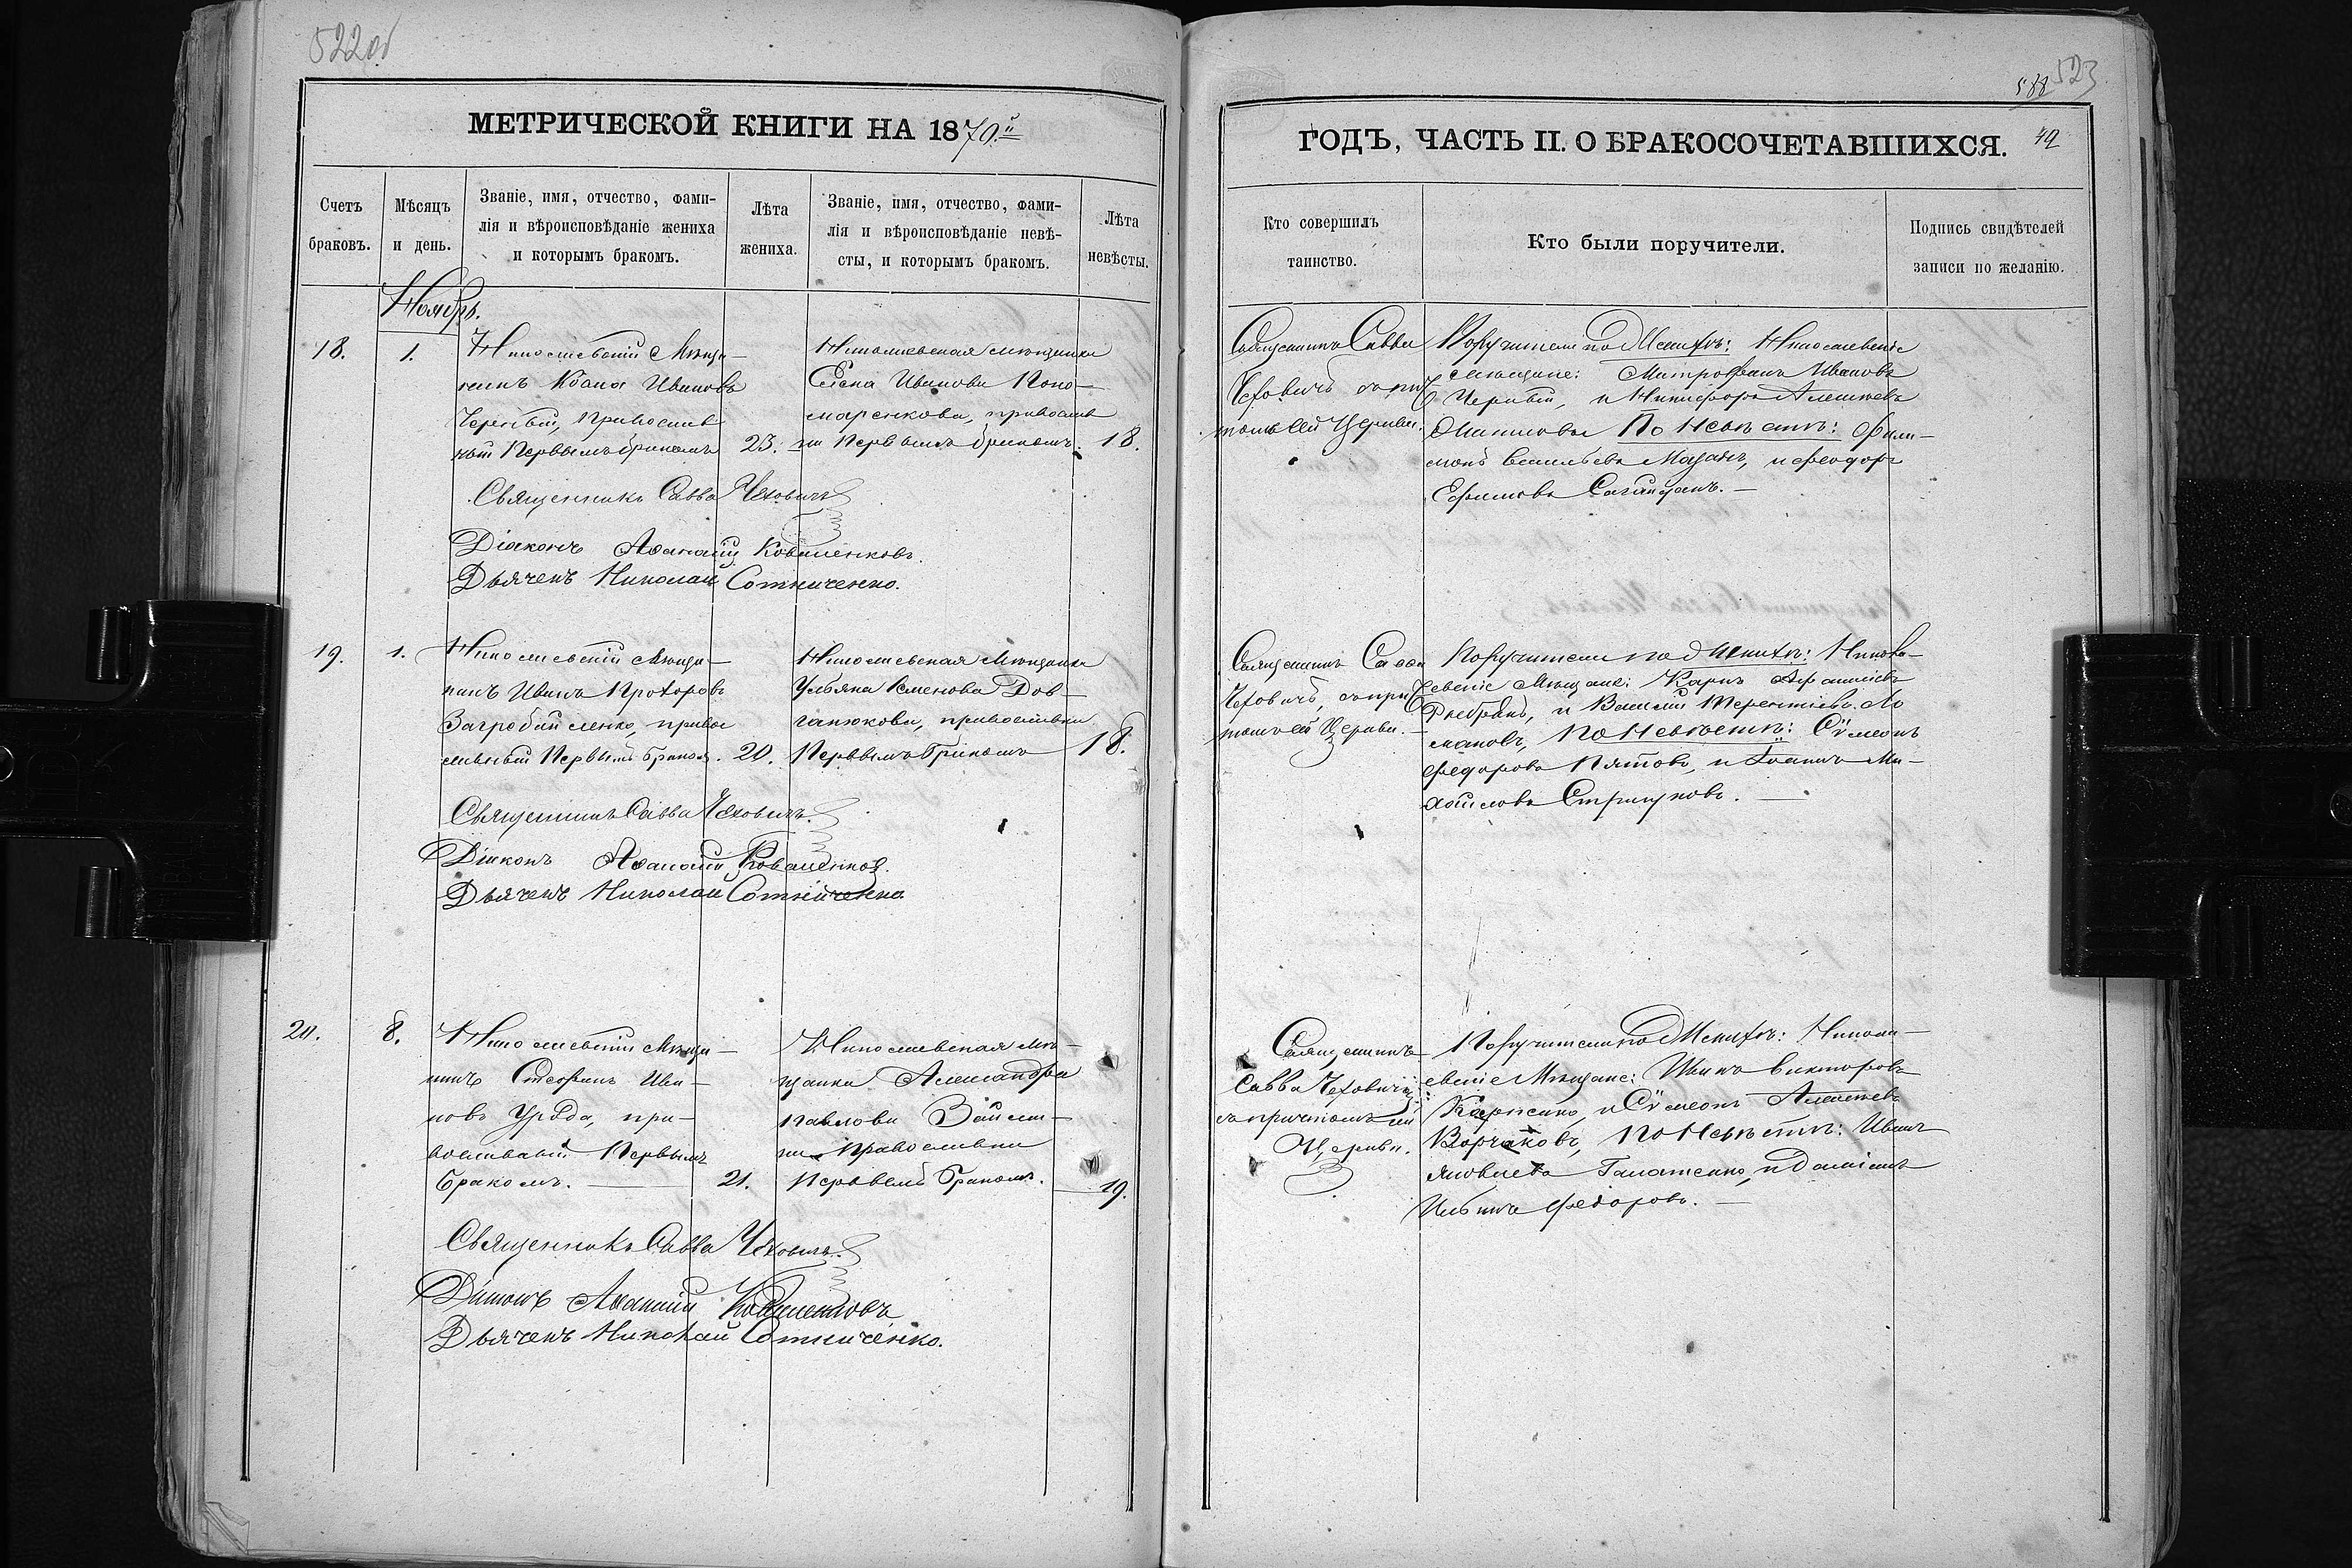 522об
МЕТРИЧЕСКОЙ КНИГИ НА 1870й
Счетъ браковъ.
Мѣсяцъ и день.
Званіе, имя, отчество, фами-
лія и вѣроисповѣданіе жениха
и которымъ бракомъ.
Лѣта жениха.
Званіе, имя, отчество, фами-
лія и вѣроисповѣданіе невѣ-
сты, и которымъ бракомъ.
Лѣта невѣсты.
Ноябрь.
18.
1.
Николаевскій Мѣща-
нинъ Иванов
Черный, православ
ный Первымъ бракомъ
23.
Николаевская мѣщанка
Елена Иванова Поно-
маренкова, православ
на Первымъ бракомъ.
18.
Священникъ Савва Чеховичъ
Діаконъ Аѳанасій Коваленковъ.
Дьячекъ Николай Сотниченко.
19.
1.
Николаевскій Мѣща-
нинъ Иванъ Прохоровъ
православный Первымъ бракомъ.
20.
Николаевская Мѣщанка
Ульяна Семенова Дов-
ганюкова, православна
Первымъ бракомъ
18.
Священникъ Савва Чеховичъ.
Діаконъ Аѳанасій Коваленков.
Дьячекъ Николай Сотниченко
20.
8.
Николаевскій Мѣща-
нинъ Стефанъ Ива-
новъ Уряда, пра-
вославный Первымъ
бракомъ.
21.
Николаевская Мѣ-
щанка Александра
Павлова
православна
Первымъ бракомъ.
19.
Священникъ Савва Чеховичъ.
Діаконъ Аѳанасій Коваленковъ
Дьячекъ Николай Сотниченко.
588 523
ГОДЪ, ЧАСТЬ II. О БРАКОСОЧЕТАВШИХСЯ.
42
Кто совершилъ таинство.
Кто были поручители.
Подпись свидѣтелей записи по желанію.
Священникъ Савва
Чеховичъ съ прич
томъ сей Церкви.
Поручители по Женихѣ: Николаевскіе
мѣщане: Митрофанъ Ивановъ
Черный, и Никифоръ Алексѣевъ
По Невѣстѣ: Фили-
монъ Васильевъ Мазанъ, и Феодоръ
Ефимовъ
Священникъ Савва
Чеховичъ, съ прич
томъ сей Церкви.
Поручители по Женихѣ: Никола-
евскіе Мѣщане: Карпъ
и Василій Терентіевъ
по Невѣстѣ: Сѵмеонъ
Федоровъ Пятовъ, и Іоаннъ Ми-
хайловъ
Священникъ
Савва Чеховичъ
съ причтомъ сей
Церкви.
Поручители по Женихѣ: Никола-
евскіе Мѣщане: Иванъ Викторовъ
и Сѵмеонъ Алексѣевъ
по Невѣстѣ: Иванъ
Яковлевъ Галатенко, и
Федоровъ.